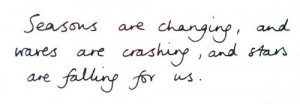 Seasons are changing, and
waves are crashing, and stars
are falling for us.